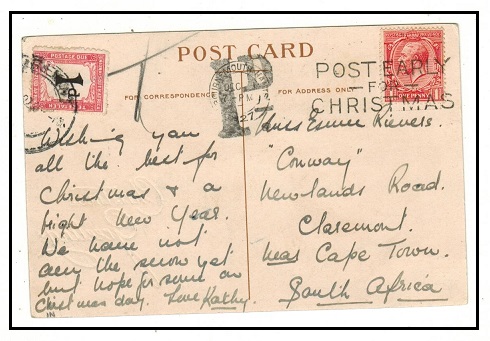 POSTAGE DUE
1d
POST CARD
FOR CORRESPONDENCE
FOR ADDRESS ONLY
POST EARLY
FOR
CHRISTMAS
ONE PENNY
P
Wishing you
all the best for
Christmas & a
bright New Year.
We have not
any the snow yet
but hope for some on
Christmas day. Love Kathy.
IN
Miss Esme
"Conway"
Newlands Road.
Claremont.
near Cape Town.
South Africa